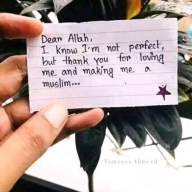 Dear Allah,
I know I'm not perfect,
but thank you for loving
me and making me a
muslim...
Tamanna Ahmed